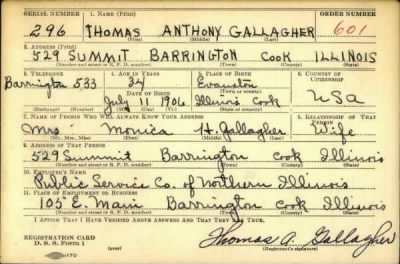 SERIAL NUMBER 1. NAME (Print) ORDER NUMBER
296 THOMAS ANTHONY GALLAGHER 601
(First) (Middle) (Last)
2. ADDRESS (Print)
529 SUMMIT BARRINGTON COOK ILLINOIS
(Number and street or R. F. D. number) (Town) (County) (State)
3. TELEPHONE 4. AGE IN YEARS 5. PLACE OF BIRTH 6. COUNTRY OF CITIZENSHIP
Barrington 533 34 Evanston
(Town or county)
DATE OF BIRTH
July 11 1906 Illinois Cook USA
(Exchange) (Number) (Mo.) (Day) (Yr.) (State or country)
7. NAME OF PERSON WHO WILL ALWAYS KNOW YOUR ADDRESS 8. RELATIONSHIP OF THAT PERSON
Mrs. Monica H. Gallagher Wife
(Mr., Mrs., Miss) (First) (Middle) (Last)
9. ADDRESS OF THAT PERSON
529 Summit Barrington Cook Illinois
(Number and street or R. F. D. number) (Town) (County) (State)
10. EMPLOYER'S NAME
Public Service Co. of Northern Illinois
11. PLACE OF EMPLOYMENT OR BUSINESS
105 E. Main Barrington Cook Illinois
(Number and street or R. F. D. number) (Town) (County) (State)
I AFFIRM THAT I HAVE VERIFIED ABOVE ANSWERS AND THAT THEY ARE TRUE.
REGISTRATION CARD
D. S. S. Form 1 (over) Thomas A. Gallagher
(Registrant's signature)